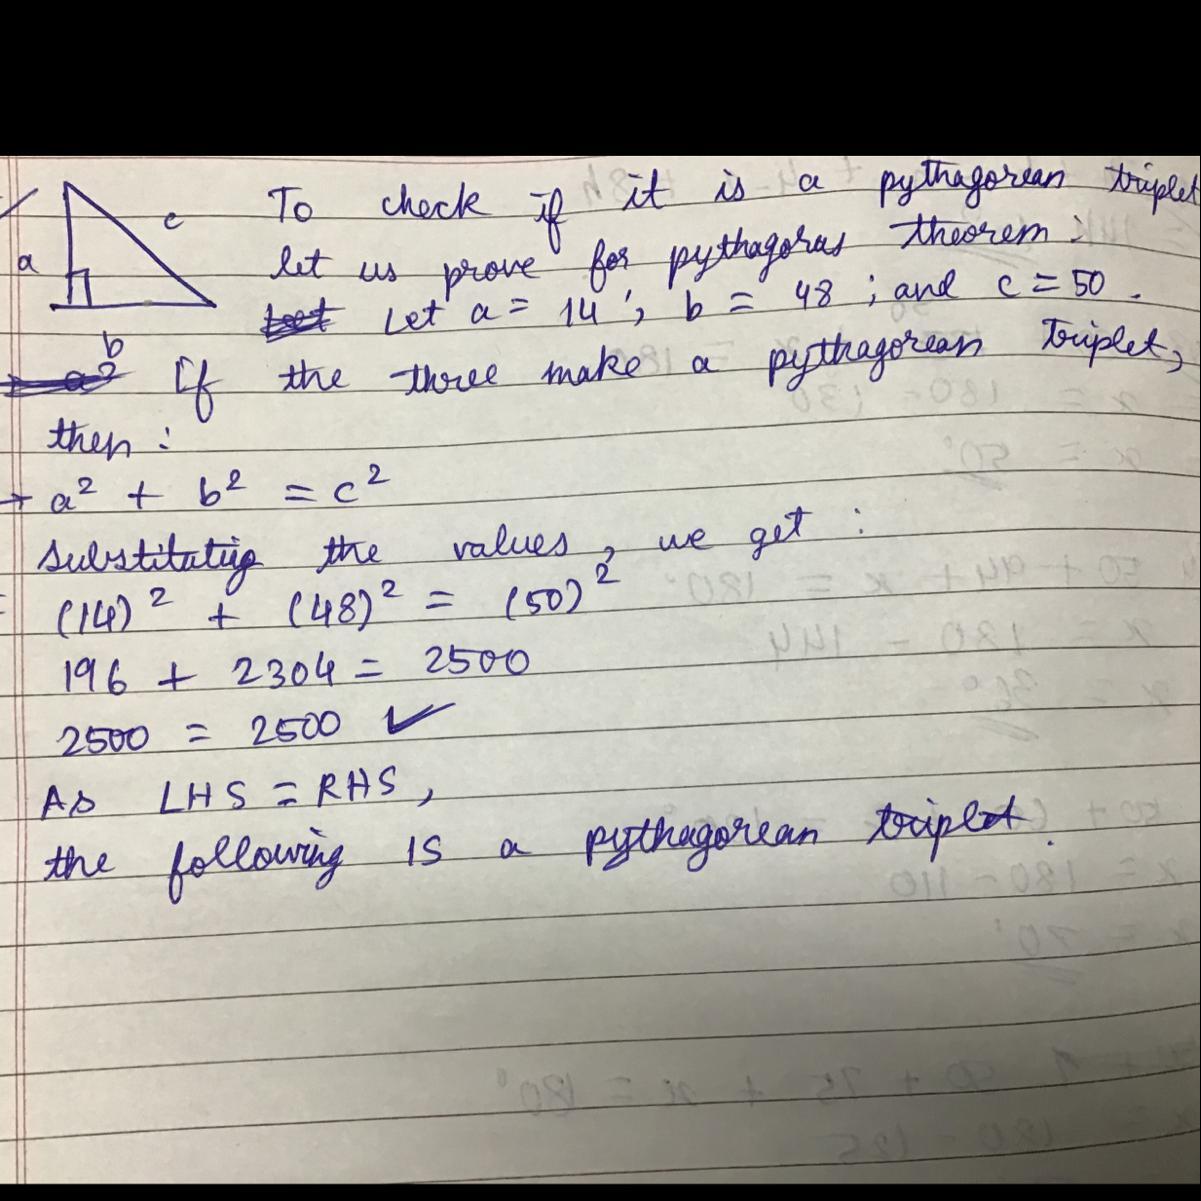 To check if it is a pythagorean triplet
let us prove for pythagoras theorem :
Let a = 14 ; b = 48 ; and c = 50 .
a
c
b
If the three make a pythagorean triplet,
then :
→ a² + b² = c²
Substitutig the values, we get :
(14)² + (48)² = (50)²
196 + 2304 = 2500
2500 = 2500 ✓
As LHS = RHS,
the following is a pythagorean triplet.